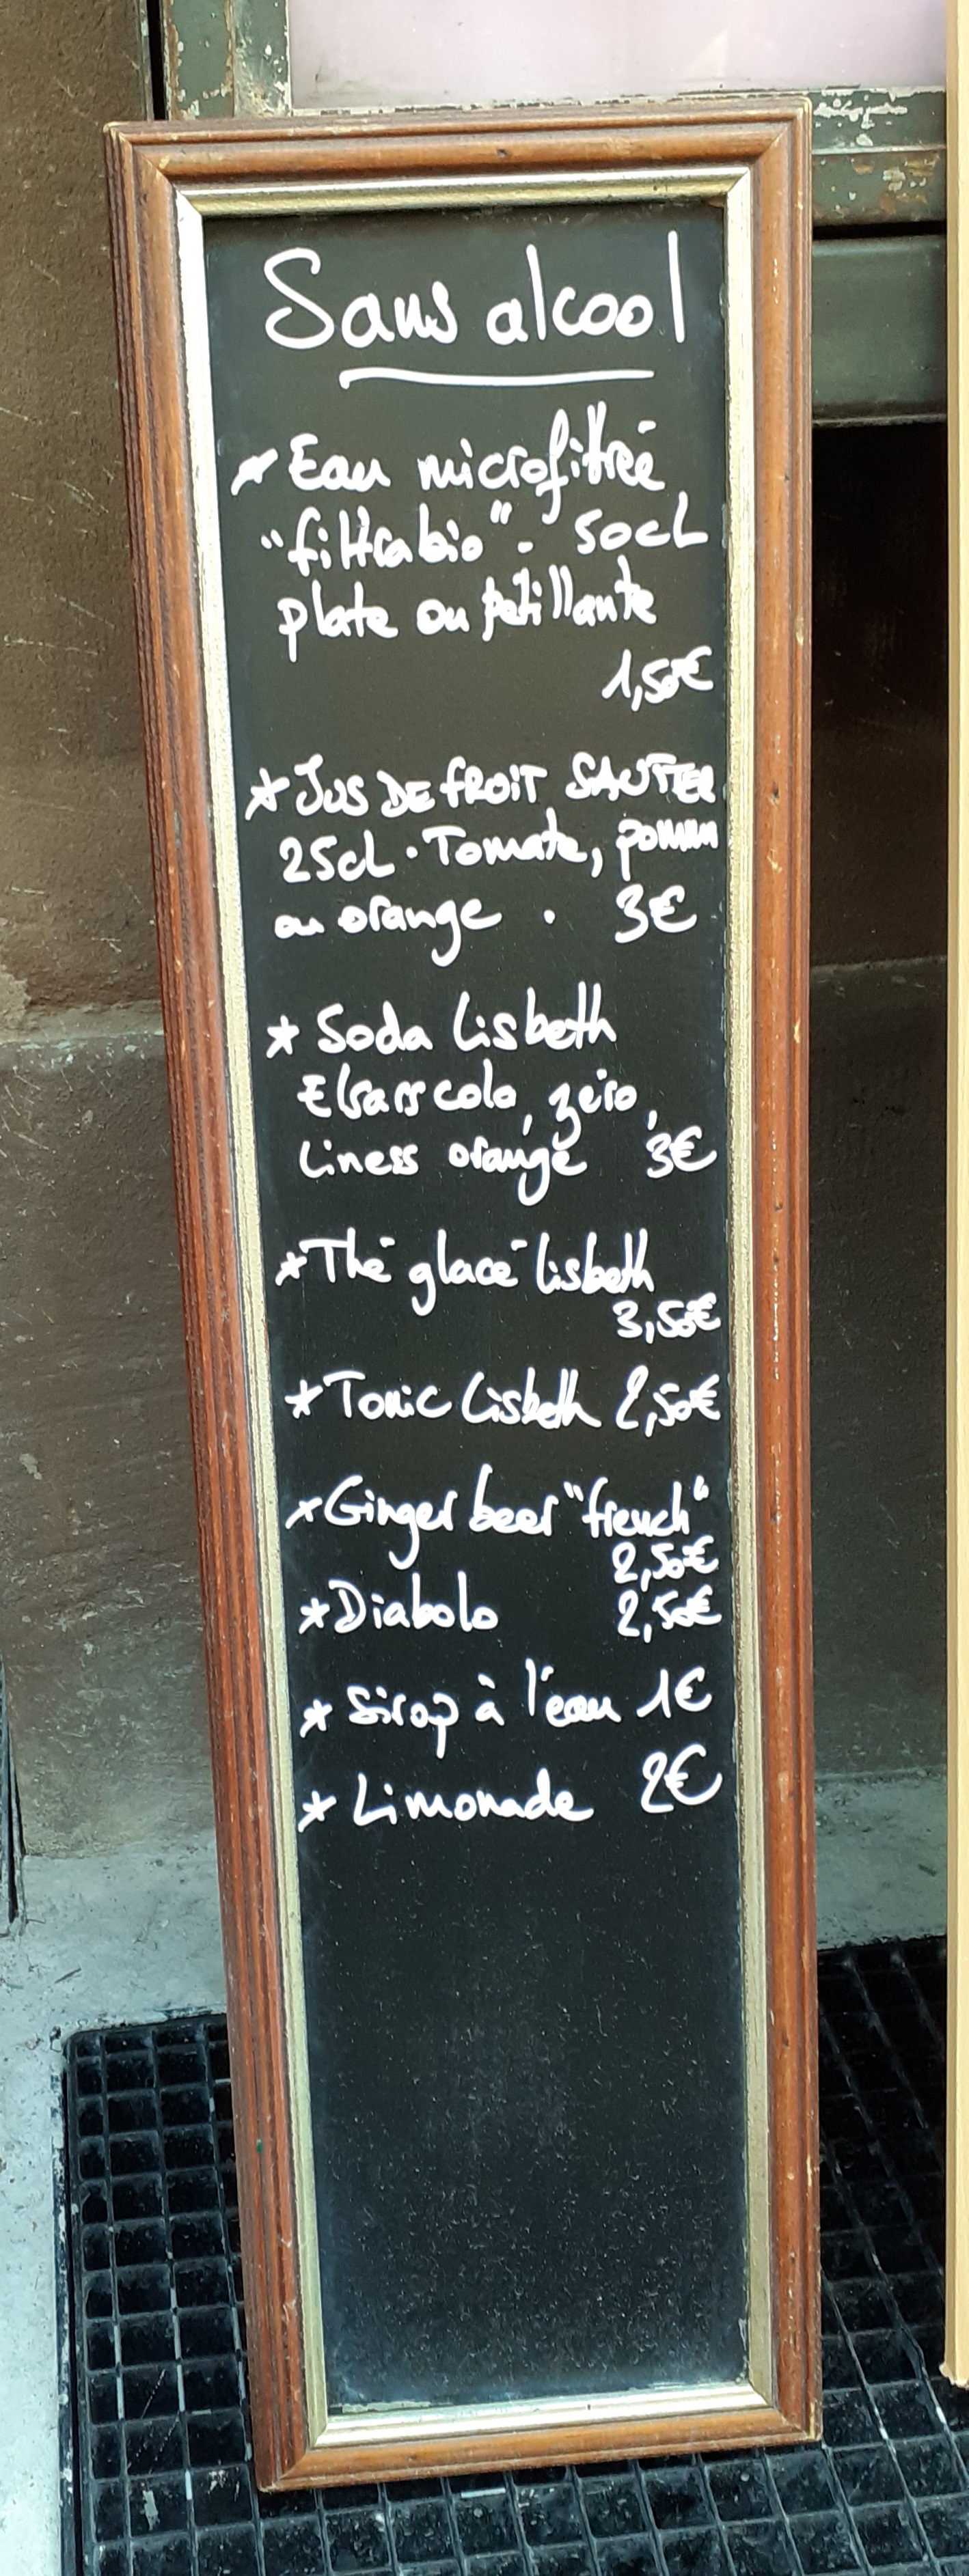 Sans alcool
* Eau microfiltrée
"filtrabio". 50cL
plate ou pétillante
1,50€
* JUS DE FROIT SAUTTER
25cL · Tomate, pomm
ou orange . 3€
* Soda Lisbeth
Elsass cola, zéro,
Liness orange 3€
* Thé glacé Lisbeth
3,50€
* Tonic Lisbeth 2,50€
* Ginger beer "french"
2,50€
* Diabolo 2,50€
* Sirop à l'eau 1€
* Limonade 2€